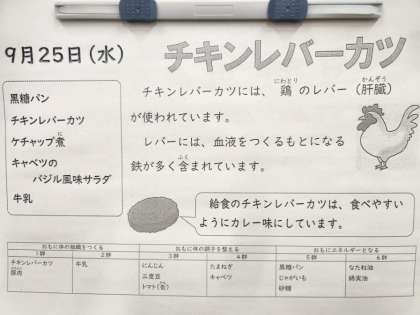 9月25日(水)
チキンレバーカツ
黒糖パン
チキンレバーカツ
ケチャップ煮
キャベツの
バジル風味サラダ
牛乳
チキンレバーカツには、鶏のレバー(肝臓)
が使われています。
レバーには、血液をつくるもとになる
鉄が多く含まれています。
給食のチキンレバーカツは、食べやすい
ようにカレー味にしています。
おもに体の組織をつくる おもに体の調子を整える おもにエネルギーとなる
1群 2群 3群 4群 5群 6群
チキンレバーカツ 牛乳 にんじん たまねぎ 黒糖パン なたね油
豚肉 三度豆 キャベツ じゃがいも 綿実油
トマト(缶) 砂糖